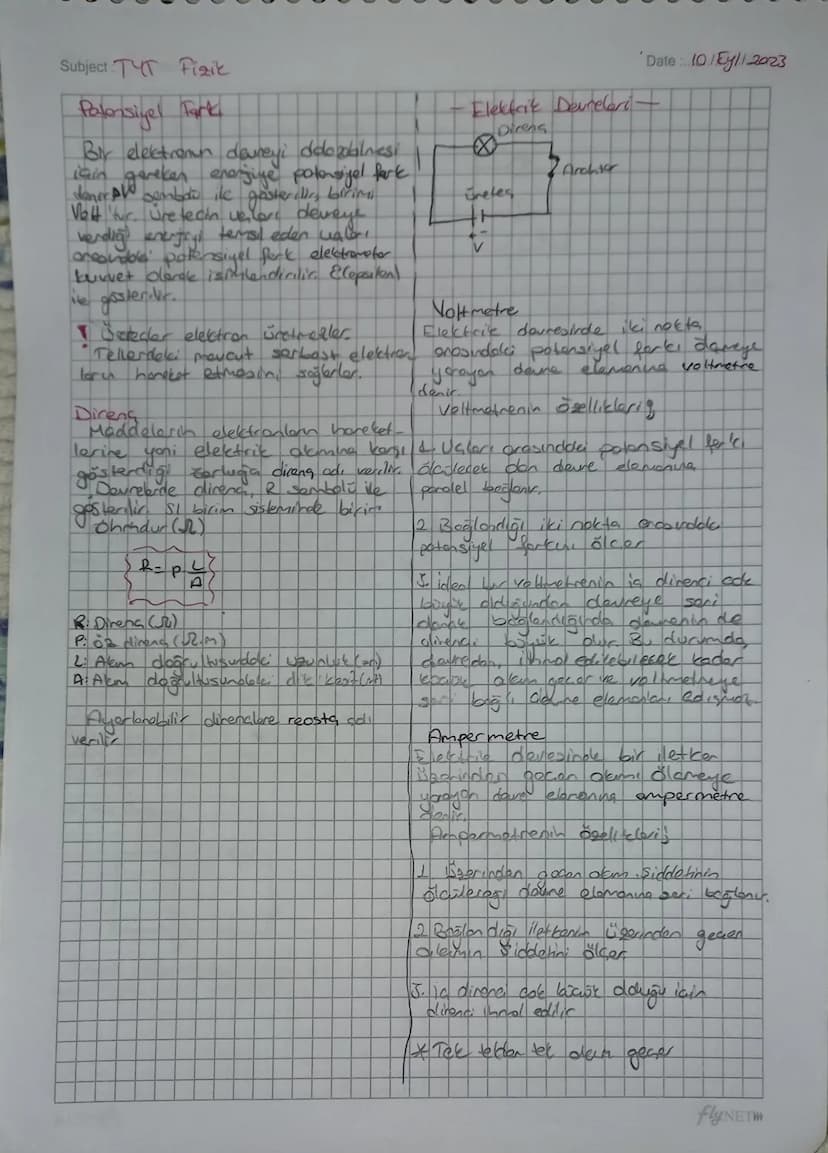 Subject: TYT Fizik
Date: 10/Eyl/2023
Potansiyel Fark
Bir elektronun devreyi dolaşabilmesi
için gereken enerjiye potansiyel fark
denir ΔV sembolü ile gösterilir, birimi
Volt'tur. Üretecin uçları devreye
verdiği enerjiyi temsil eden uçları
arasındaki potansiyel fark elektromotor
kuvvet olarak isimlendirilir. ε(epsilon)
ile gösterilir.
! Üreteçler elektron üretmezler.
Tellerdeki mevcut serbest elektron
ların hareket etmesini sağlarlar.
Direnç
Maddelerin elektronların hareket-
lerine yani elektrik akımına karşı
gösterdiği zorluğa direnç adı verilir.
Devrelerde direnç, R sembolü ile
gösterilir. SI birim sisteminde birimi
Ohmdur (Ω)
R = ρ L/A
R: Direnç (Ω)
ρ: öz direnç (Ω.m)
L: Akım doğrultusundaki uzunluk
A: Akım doğrultusundaki dik kesit
Ayarlanabilir dirençlere reosta adı
verilir
— Elektrik Devreleri —
Direnç
Anahtar
Üreteç
+ -
V
Voltmetre
Elektrik devresinde iki nokta
arasındaki potansiyel farkı
yarayan devre elemanına voltmetre
denir.
Voltmetrenin özellikleri;
1. Uçları arasındaki potansiyel farkı
ölçülecek olan devre elemanına
paralel bağlanır.
2. Bağlandığı iki nokta arasındaki
potansiyel farkını ölçer
3. ideal bir voltmetrenin iç direnci çok
büyük olduğundan devreye seri
olarak bağlandığında devrenin de
direnci büyük olur. Bu durumda
devreden, ihmal edilebilecek kadar
küçük akım geçer ve voltmetreye
seri bağlı devre elemanları çalışmaz.
Ampermetre
Elektrik devresinde bir iletken
üzerinden geçen akımı ölçmeye
yarayan devre elemanına ampermetre
denir.
Ampermetrenin özellikleri;
1. Üzerinden geçen akım şiddetinin
ölçüleceği devre elemanına seri bağlanır.
2. Bağlandığı iletkenin üzerinden geçen
akımın şiddetini ölçer
3. iç direnci çok küçük olduğu için
direnci ihmal edilir
* Tek telden tek akım geçer
flyNETwork